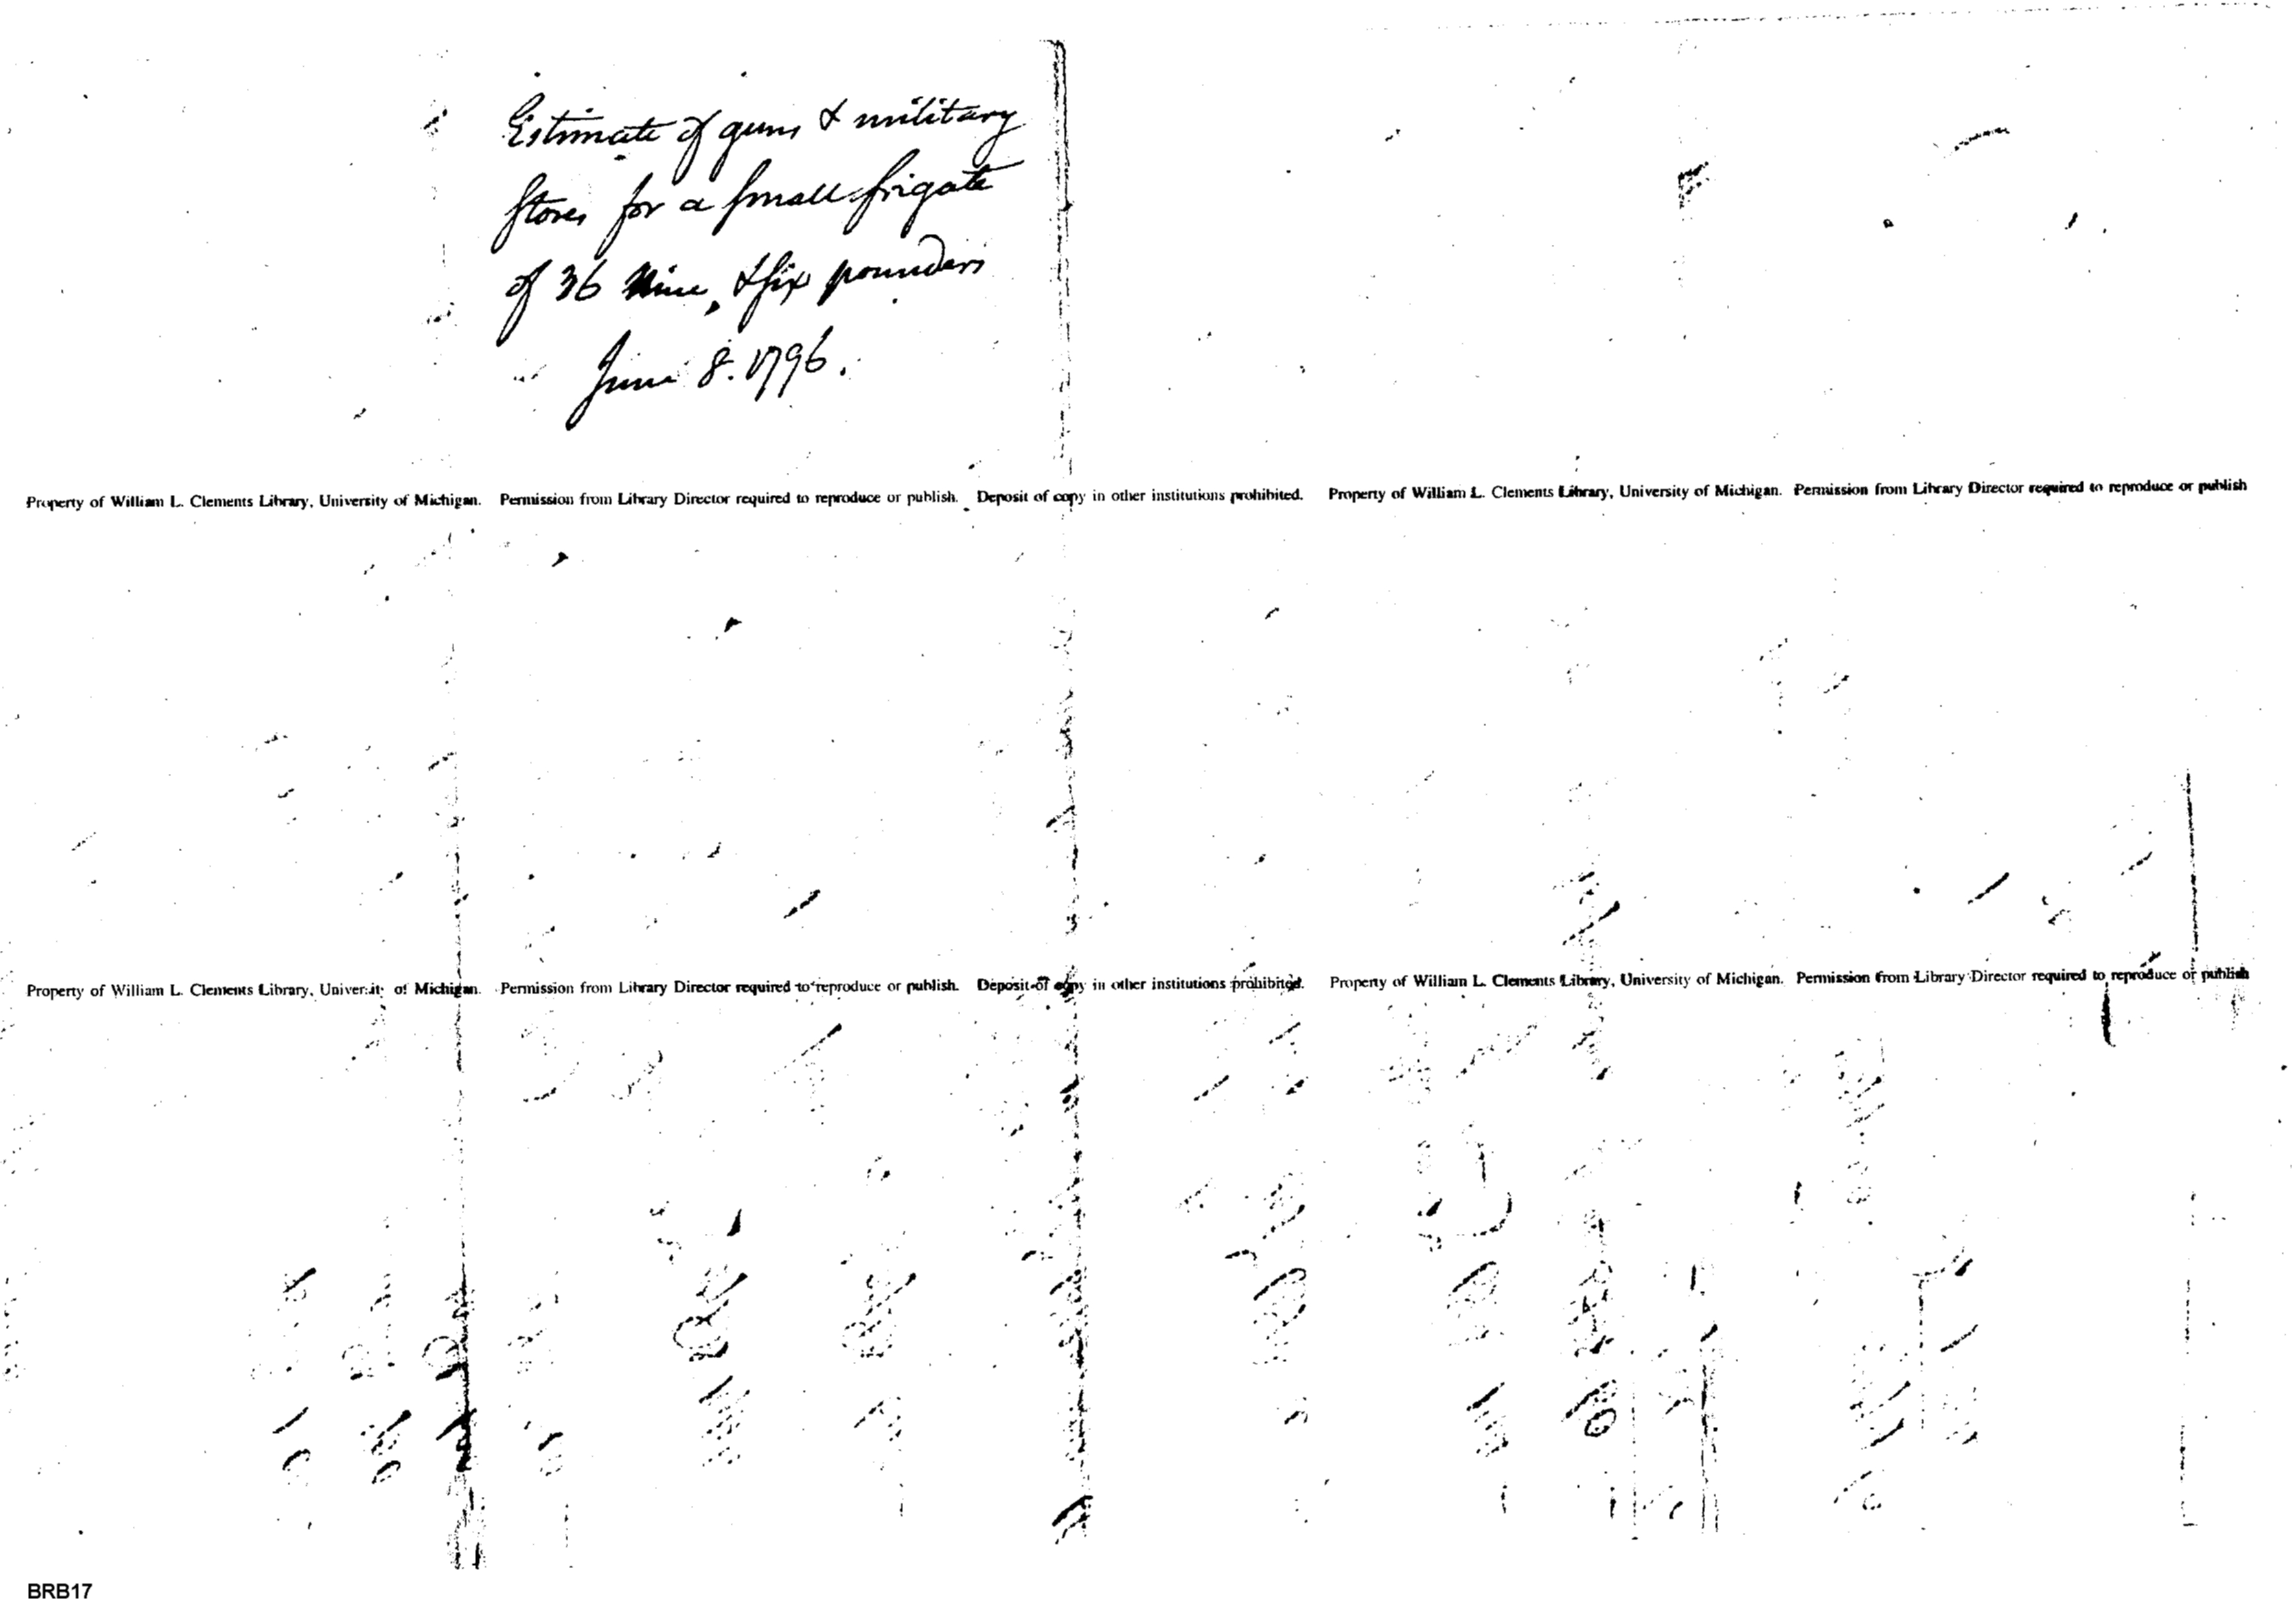 Estimate of guns & military
stores for a small frigate
of 36 Nine, & six pounders
June 8. 1796.
Property of William L. Clements Library, University of Michigan. Permission from Library Director required to reproduce or publish. Deposit of copy in other institutions prohibited. Property of William L. Clements Library, University of Michigan. Permission from Library Director required to reproduce or publish
Property of William L. Clements Library, University of Michigan. Permission from Library Director required to reproduce or publish. Deposit of copy in other institutions prohibited. Property of William L. Clements Library, University of Michigan. Permission from Library Director required to reproduce or publish
BRB17